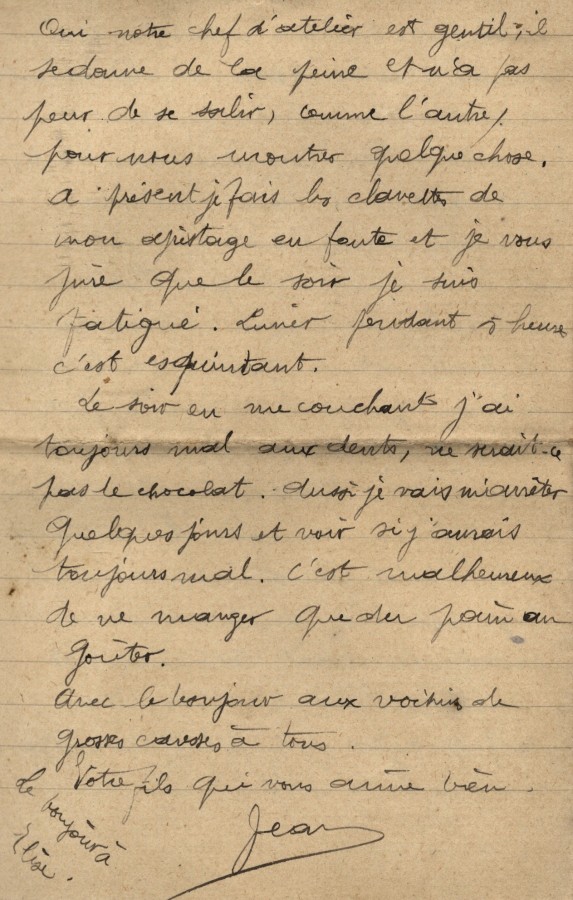 Oui notre chef d'atelier est gentil, il
se donne de la peine et n'a pas
peur de se salir, comme l'autre,
pour nous montrer quelque chose.
A présent je fais les clavettes de
mon apistage en fonte et je vous
jure que le soir je suis
fatigué. Limer pendant 5 heures
c'est esquintant.
Le soir en me couchant j'ai
toujours mal aux dents, ne serait-ce
pas le chocolat. Aussi je vais m'arrêter
quelques jours et voir si j'aurais
toujours mal. C'est malheureux
de ne manger que du pain au
goûter.
Avec le bonjour aux voisins de
grosses caresses à tous.
Votre fils qui vous aime bien.
Jean
Le bonjour à
Elise.